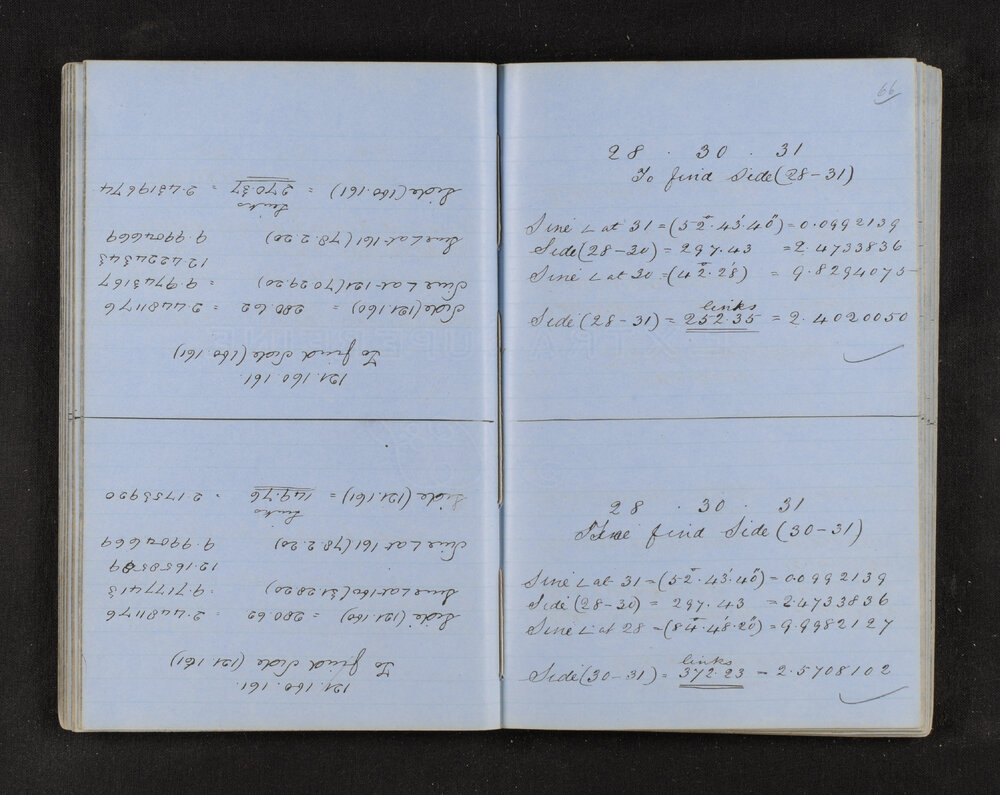 66
28 . 30 . 31
To find Side (28-31)
Sine ∠ at 31 = (52°.43'.40") = 0.0992139
Side (28-30) = 297.43 = 2.4733836
Sine ∠ at 30 = (42°.2'.28") = 9.8294075
links
Side (28-31) = 252.35 = 2.4020050
28 . 30 . 31
find Side (30-31)
Sine ∠ at 31 = (52°.43'.40") = 0.0992139
Side (28-30) = 297.43 = 2.4733836
Sine ∠ at 28 = (84°.48'.20") = 9.9982127
links
Side (30-31) = 372.23 = 2.5708102
121.160.161.
To find Side (121.161)
Side (121.160) = 280.62 = 2.4481176
Sine ∠ at 160 (31.28.20) = 9.7177413
12.1658589
Sine ∠ at 161 (78.2.20) 9.9904669
Links
Side (121.161) = 149.76 = 2.1753920
121.160.161.
To find Side (160.161)
Side (121.160) = 280.62 = 2.4481176
Sine ∠ at 121 (70.29.20) = 9.9743167
12.4224343
Sine ∠ at 161 (78.2.20) 9.9904669
Links
Side (160.161) = 270.37 = 2.4319674